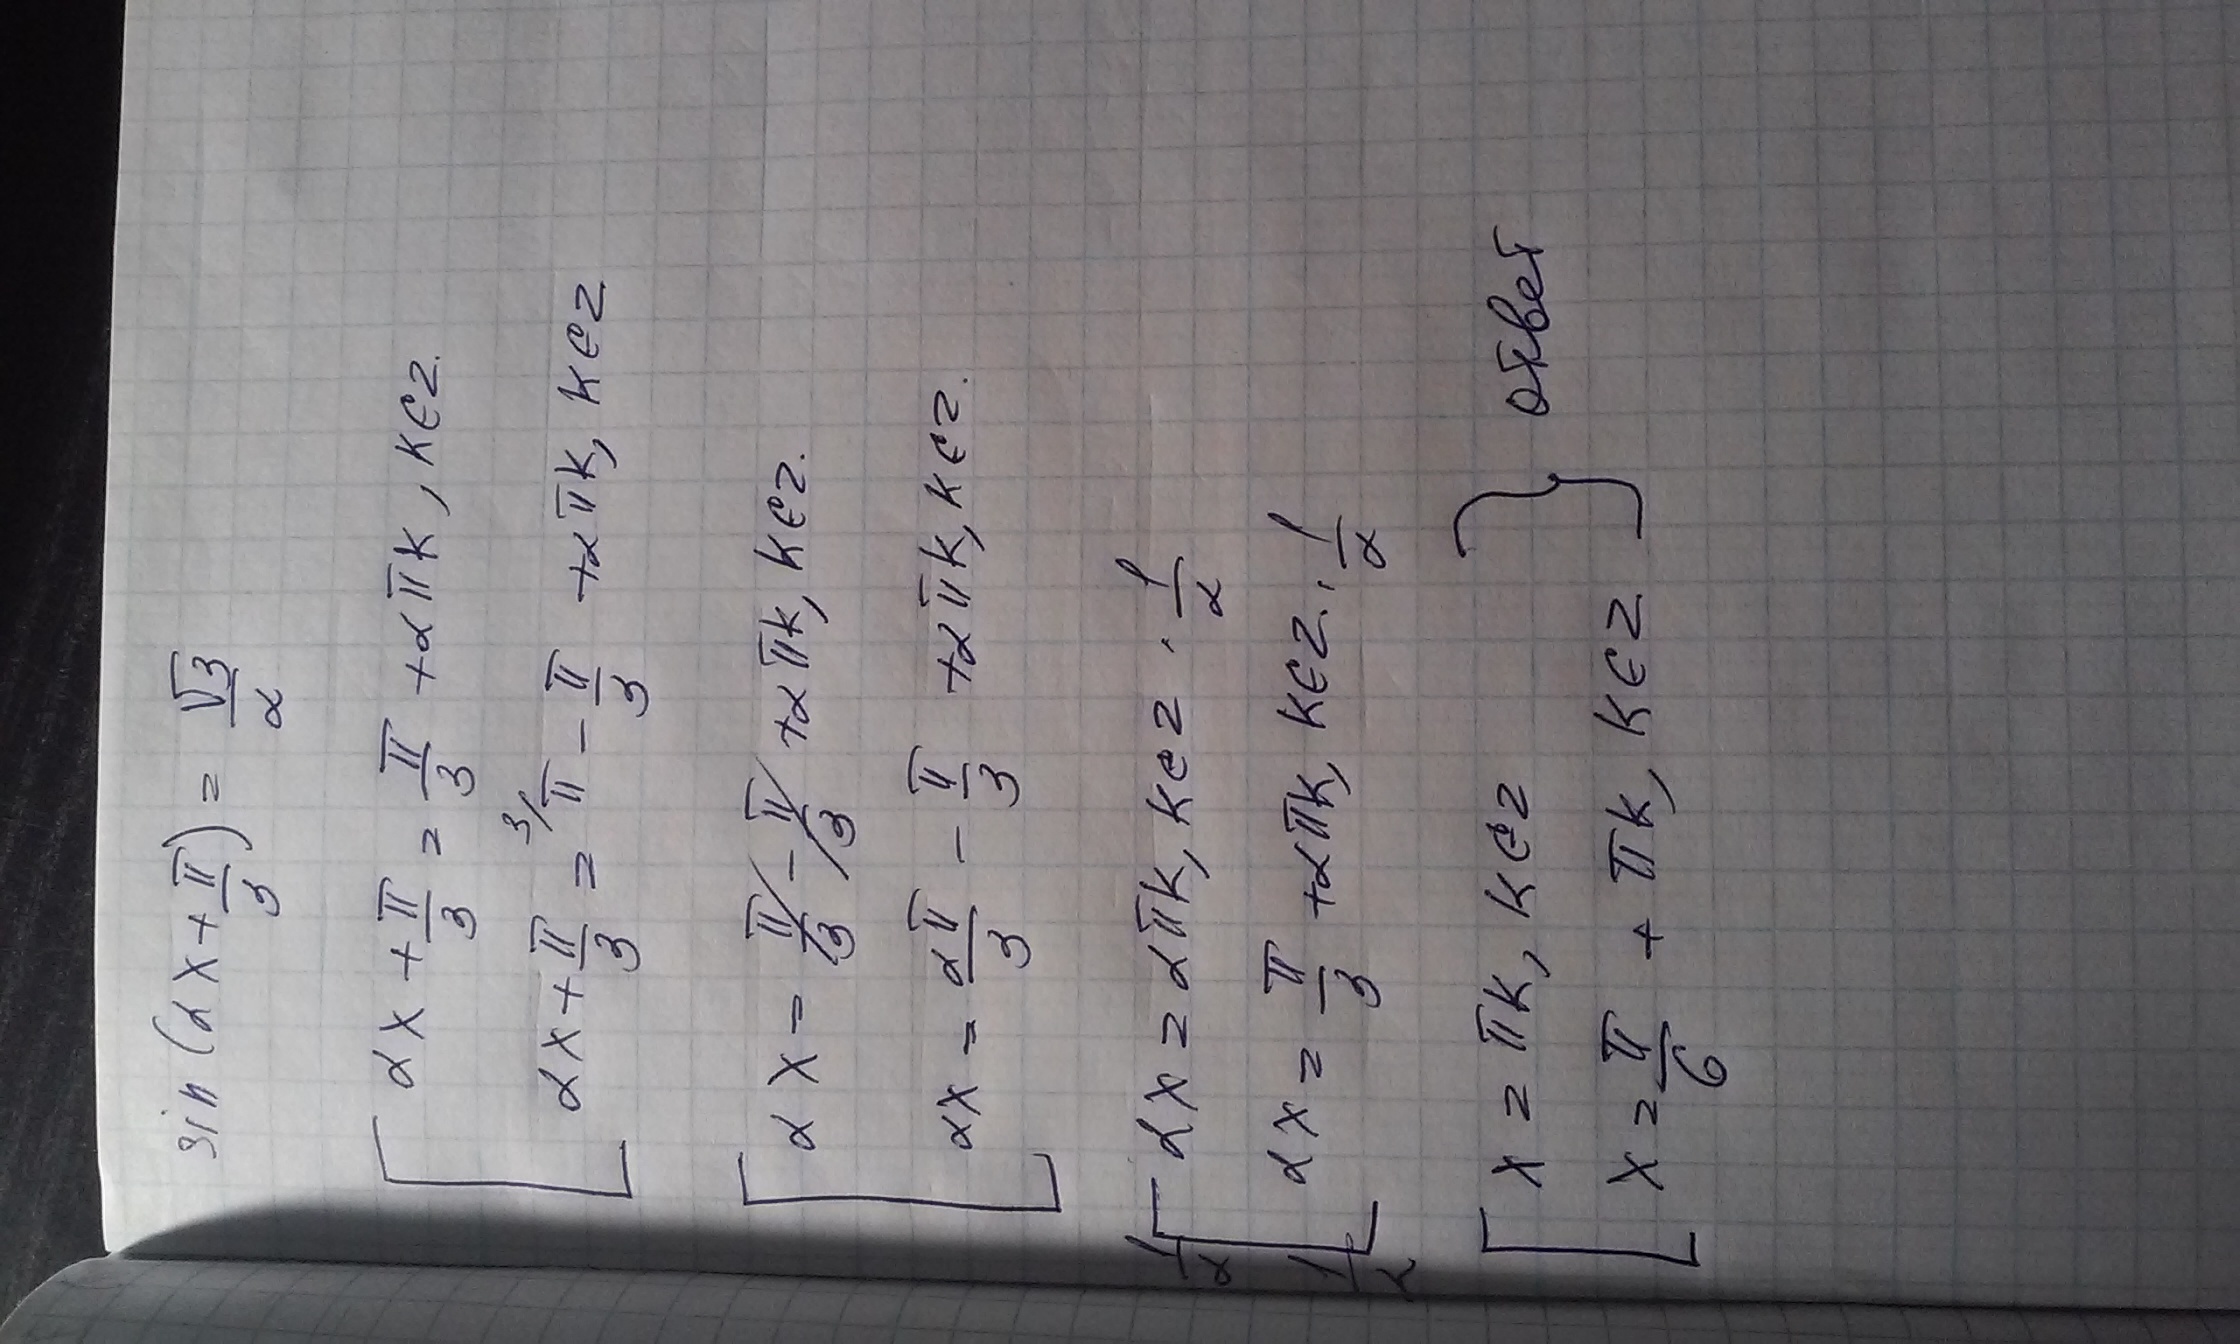 sin(2x + π/3) = √3/2
[ 2x + π/3 = π/3 + 2πk, k∈z.
2x + π/3 = ³⁄π - π/3 + 2πk, k∈z
[ 2x = π/3 - π/3 + 2πk, k∈z.
2x = 2π/3 - π/3 + 2πk, k∈z.
1/2 [ 2x = 2πk, k∈z · 1/2
1/2 2x = π/3 + 2πk, k∈z. · 1/2
[ x = πk, k∈z
x = π/6 + πk, k∈z } ответ